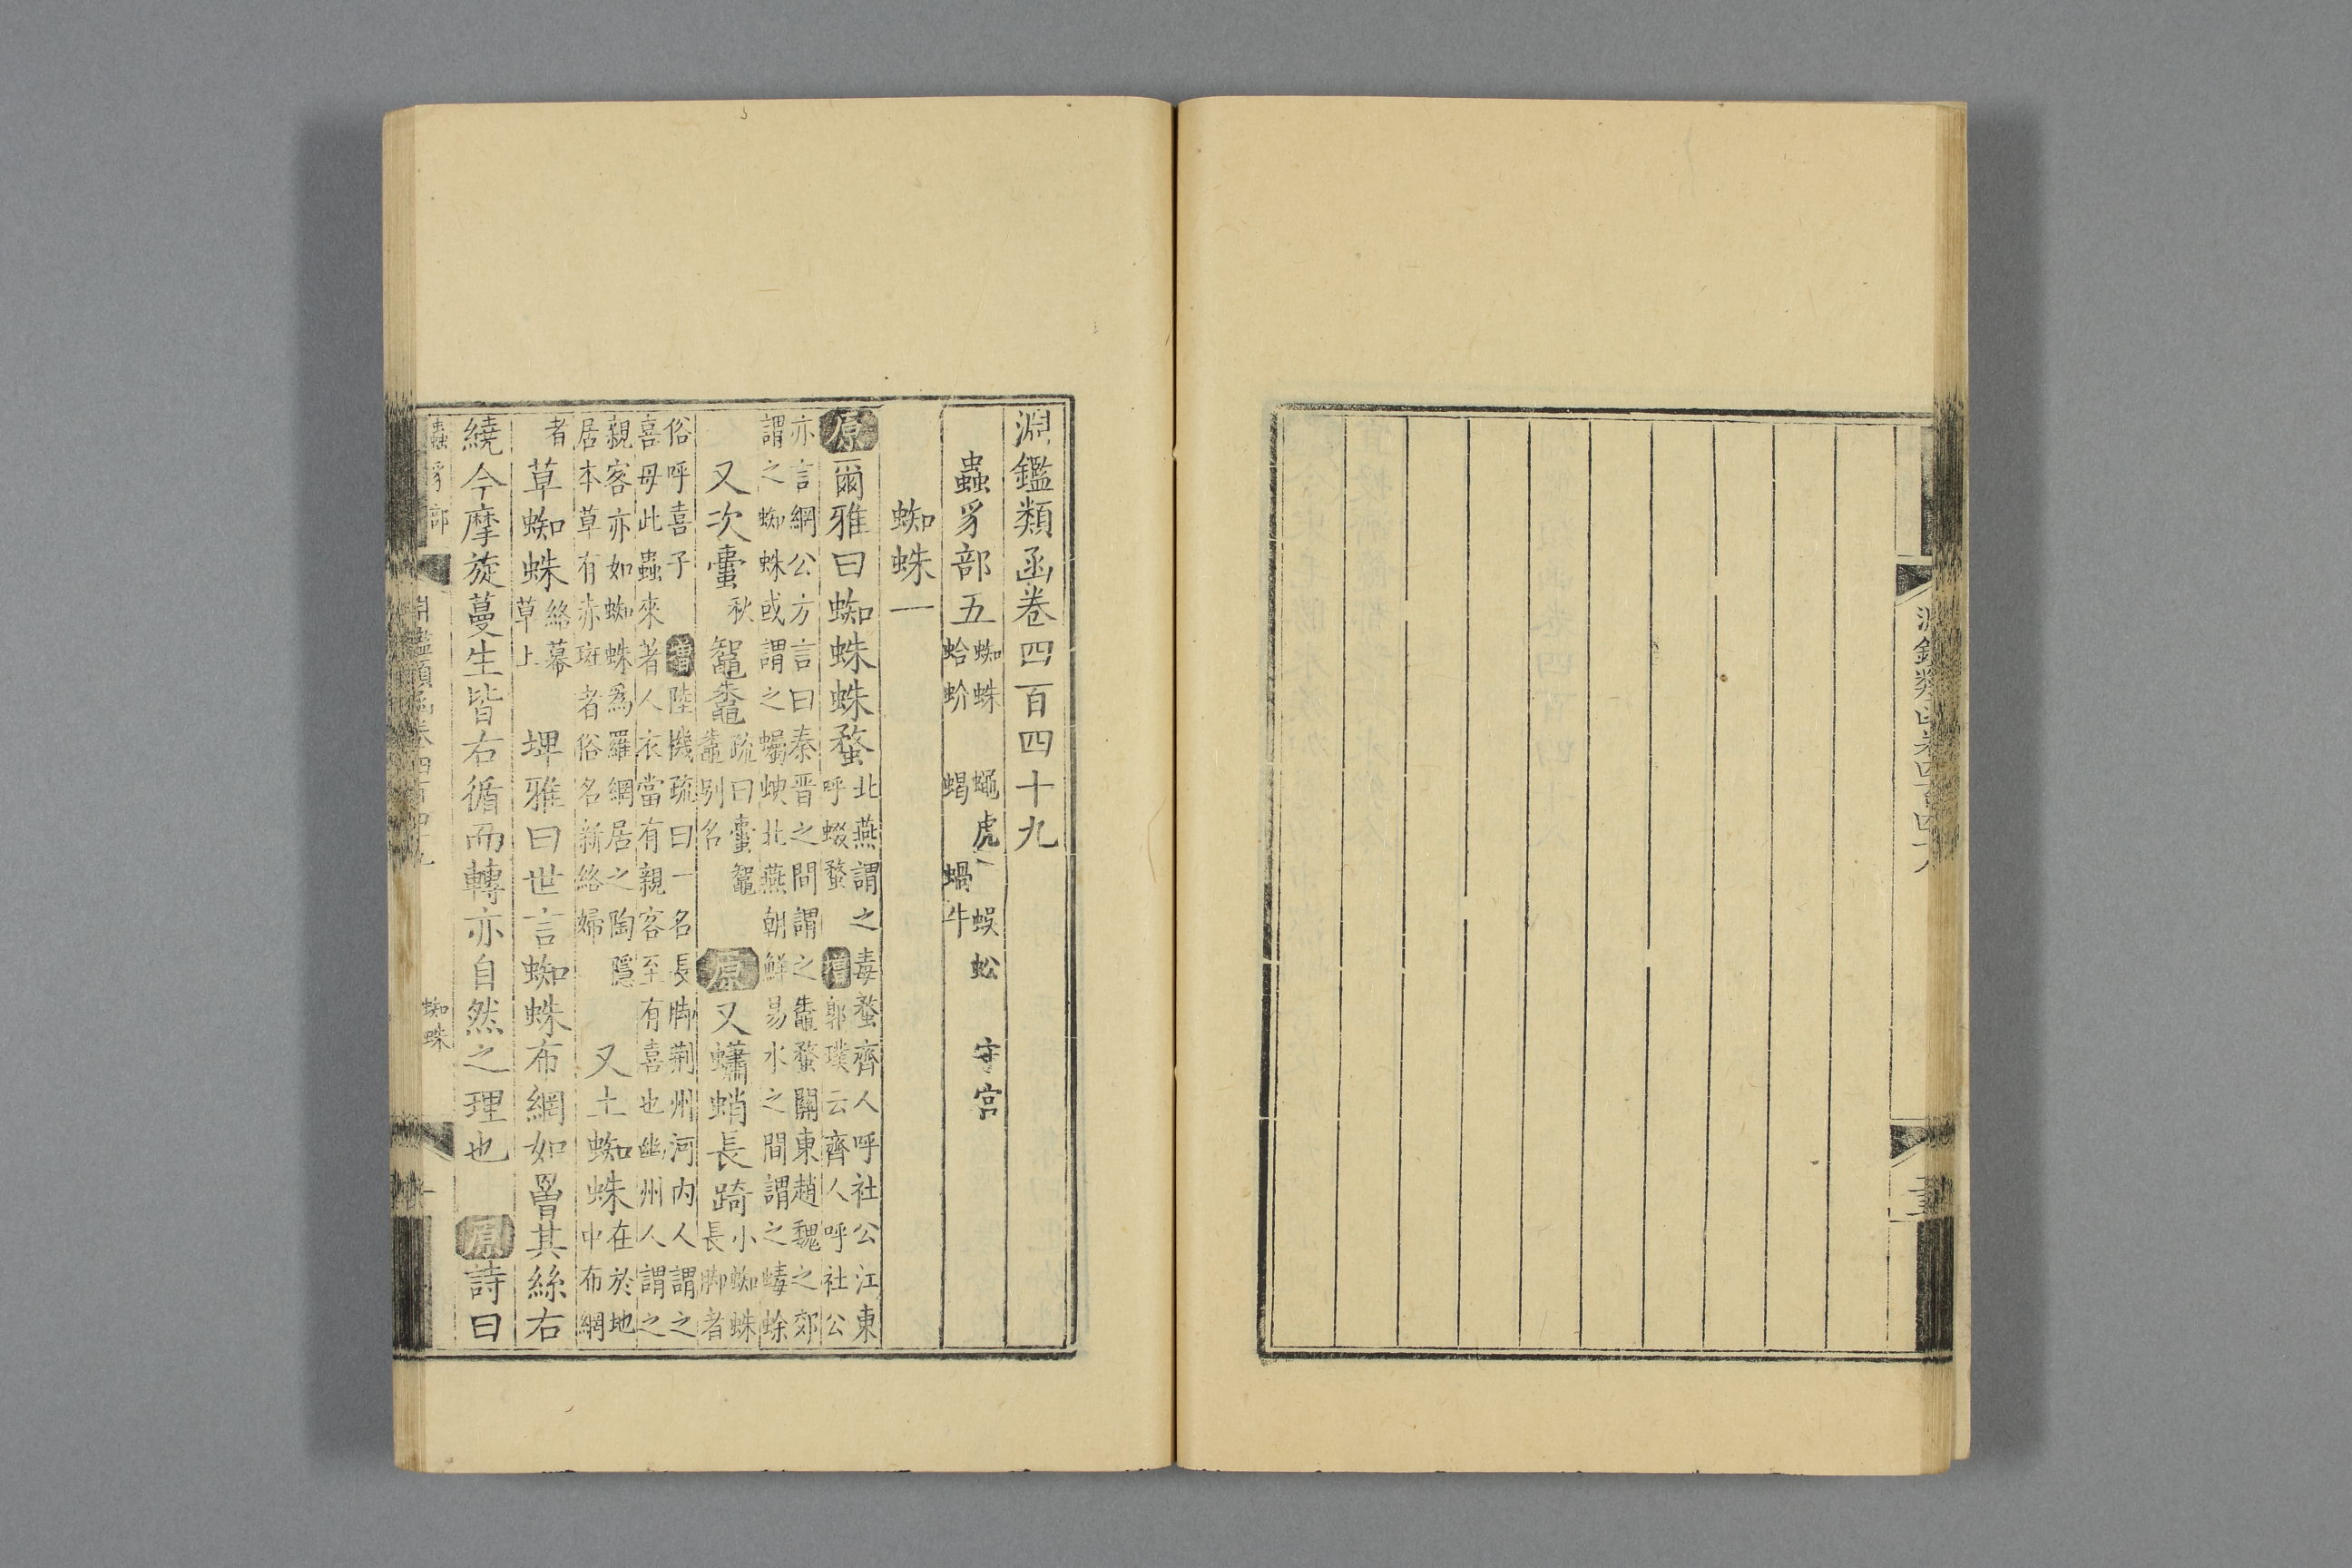 淵鑑類函卷四百四十八
淵鑑類函卷四百四十九
蟲豸部五 蜘蛛 蠅虎 蜈蚣 守宮
蛤蚧 蝎 蝸牛
蜘蛛一
原爾雅曰蜘蛛蛛蝥 北燕謂之毒蝥齊人呼社公江東
呼蝃蝥 增郭璞云齊人呼社公
亦言網公方言曰秦晋之間謂之鼄蝥關東趙魏之郊
謂之蜘蛛或謂之蠾蝓北燕朝鮮易水之間謂之蝳蜍
又次蟗 秋 鼅鼄 疏曰蟗鼅
鼄别名 原又蠨蛸長踦 小蜘蛛
長脚者
俗呼喜子 增陸機疏曰一名長脚荆州河内人謂之
喜母此蟲來著人衣當有親客至有喜也幽州人謂之
親客亦如蜘蛛爲羅網居之陶隱
居本草有赤斑者俗名新絡婦 又土蜘蛛 在於地
中布網
者 草蜘蛛 絡幕
草上 埤雅曰世言蜘蛛布網如罾其絲右
繞今摩旋蔓生皆右循而轉亦自然之理也 原詩曰
蟲豸部 淵鑑類函卷四百四十九 蜘蛛 一